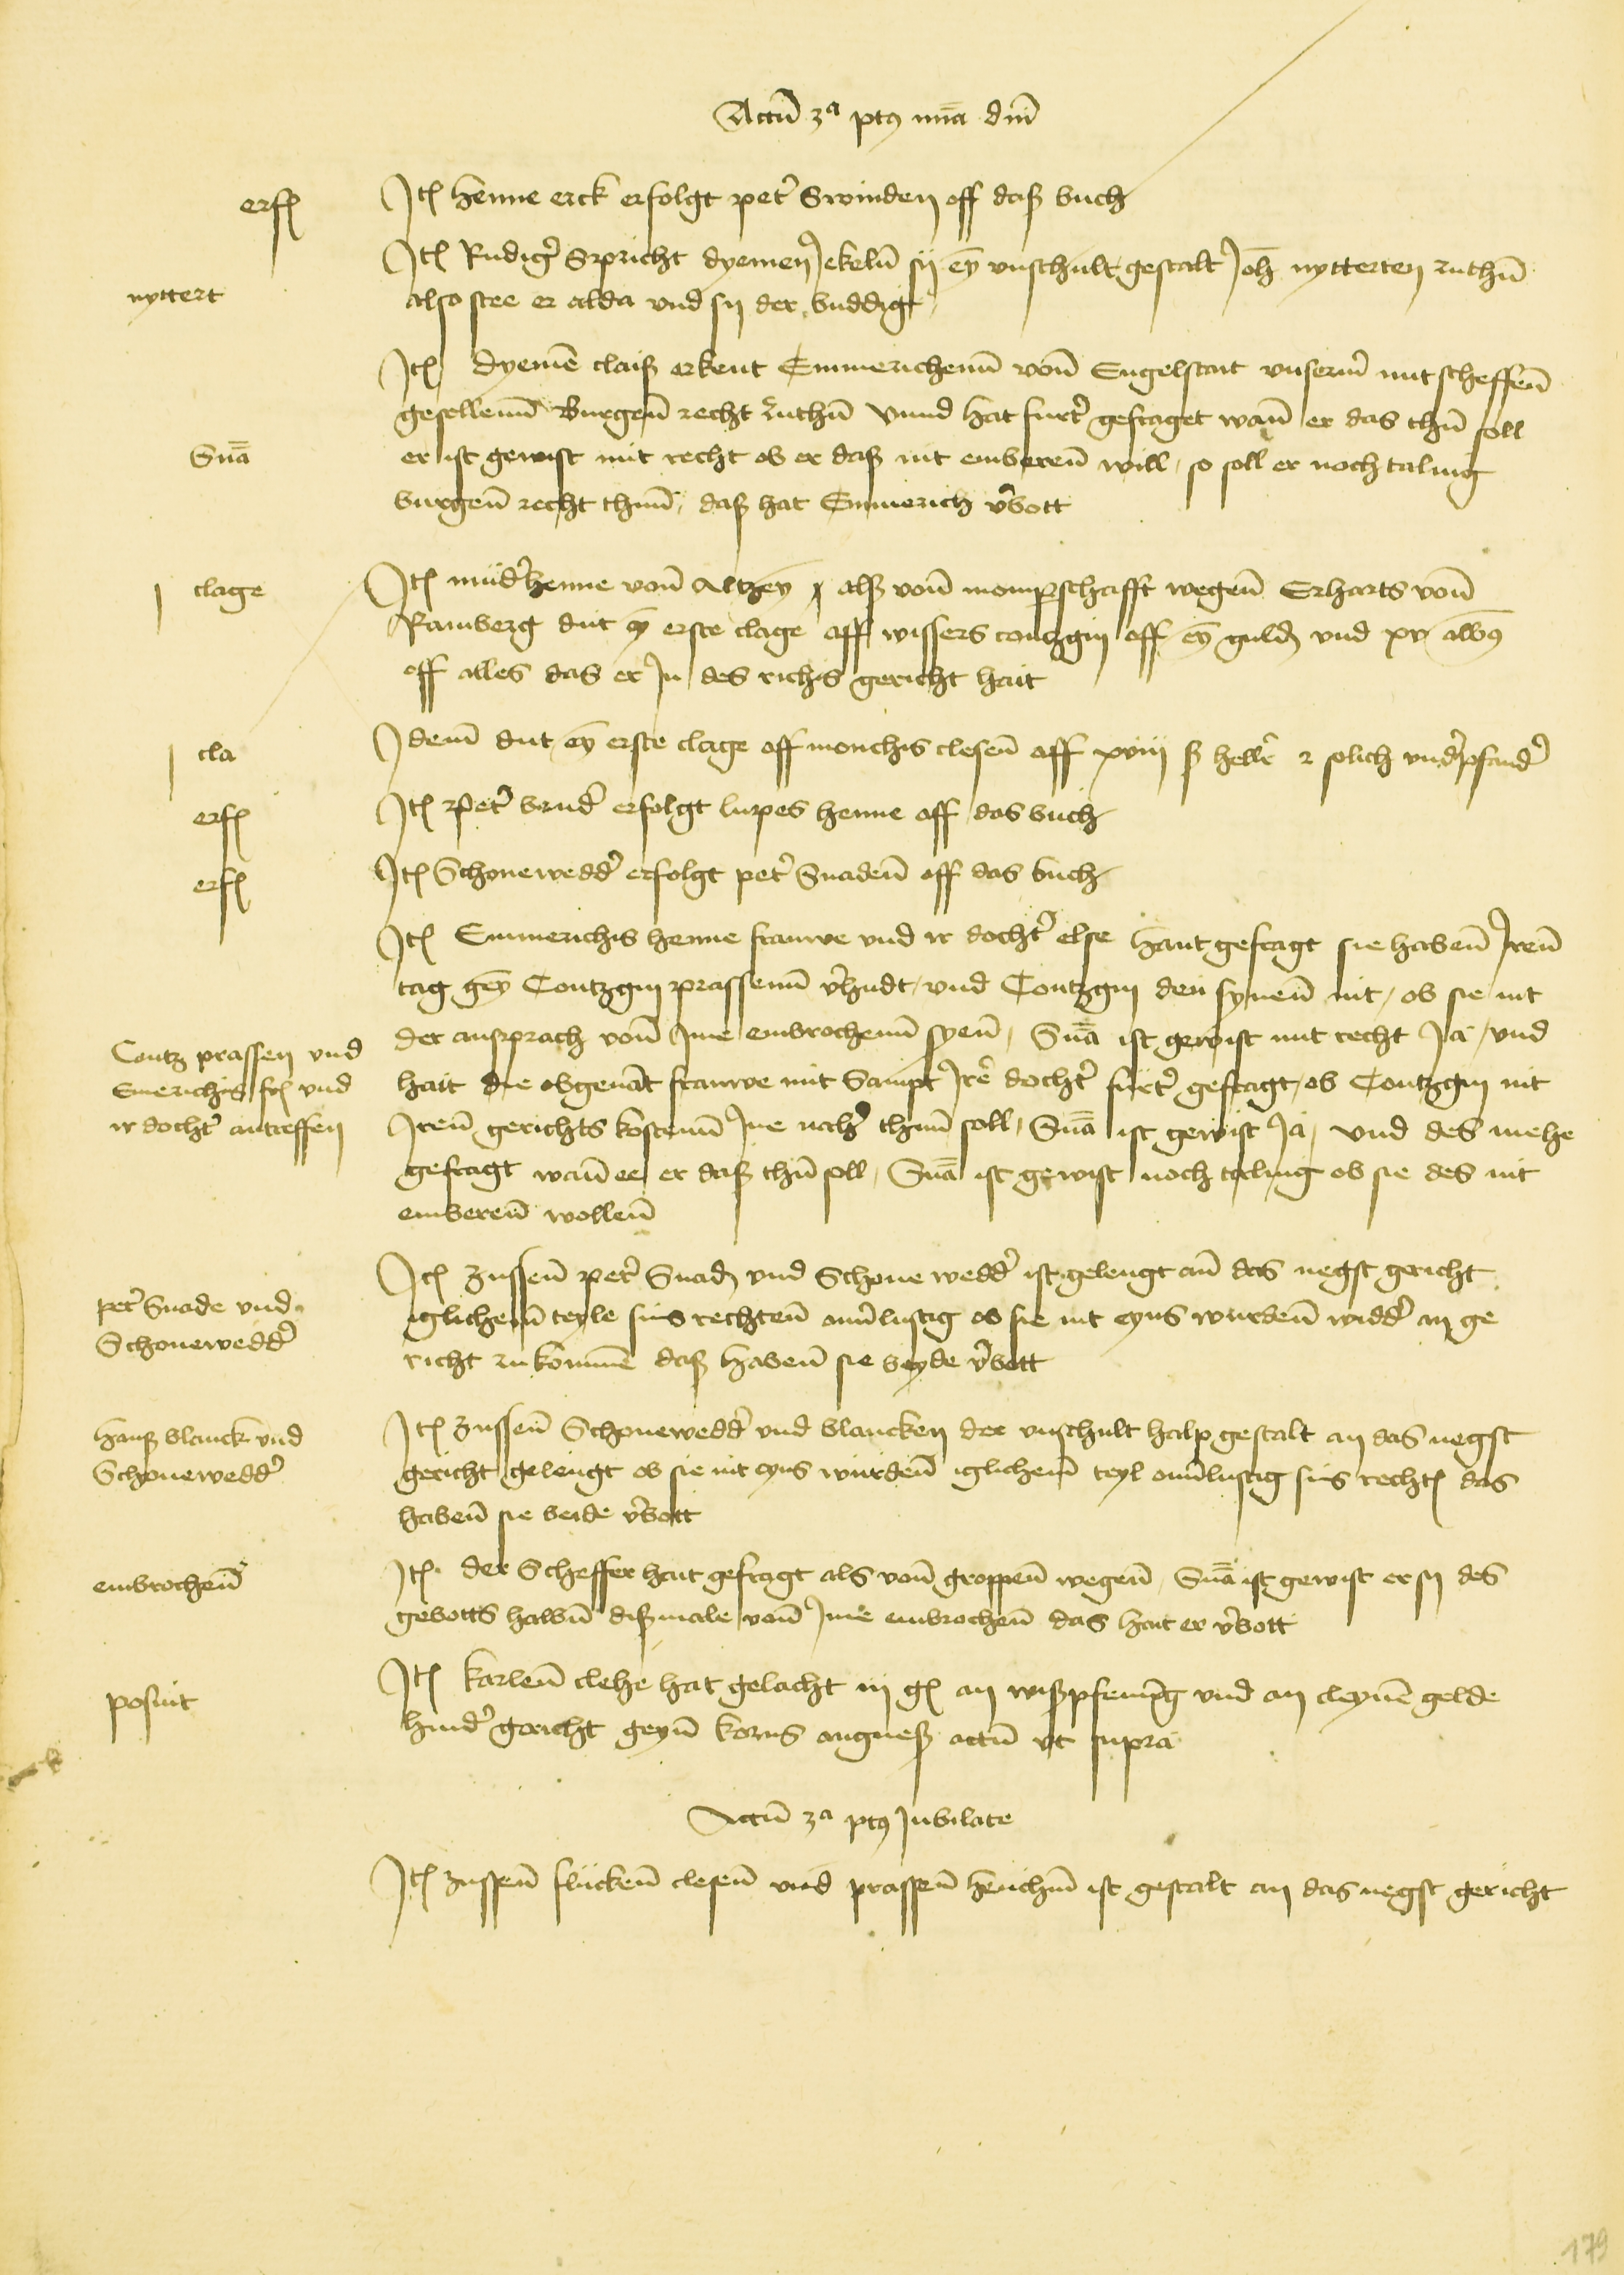 Actū 3ª ptꝯ mīa dnī
erfꝭ
Itꝭ henne erck erfolgt pet̉ Swinden off daß buch
Itꝭ Rudig̉ Spricht dyemen Jekeln̄ sy eȳ vnschult gestalt Joh̄ nytterten zuthū
nyttert
also stee er alda vnd sy der buddig
Itꝭ dyemē claiß erkent Emmerichenn̄ von̄ Engelstat vnserm̄ mitscheffen̄
gesellenn̄ Burgen̄ recht zuthū Vnnd hat furt̉ gefraget wan̄ er das thū soll
Snīa
er ist gewist mit recht ob er daß nit emberen̄ will, so soll er noch taling
burgen̄ recht thun̄, daß hat Emmerich v̉bott
clage
Itꝭ mud̉henne von̄ Altzey als von̄ momperschafft wegen̄ Erharts von̄
Ramberg dut eȳ erste clage off wissers contzgin off eȳ guldꝭ vnd xv albꝯ
off alles das er Jn des richs gericht hait
cla
Idem̄ dut eȳ erste clage off monchis clesen̄ off xviij ß hell̉ ꝛ solich vnd̉pfand̉
erfꝭ
Itꝭ Pet̉ brud̉ erfolgt lupes henne off das buch
erfꝭ
Itꝭ Schonewedd̉ erfolgt pet̉ Snaden̄ off das buch
Itꝭ Emmerichis henne frauwe vnd ir docht̉ else hant gefragt sie haben̄ Iren̄
tag geȳ Contzgin prassenn̄ v̉hudt, vnd Contzgin den synen̄ nit, ob sie nit
Contz prassen vnd
der ansprach von̄ Jme embrochenn̄ syen̄, Snīa ist gewist mit recht Ja, vnd
Emerichis frꝭ vnd
hait die obgenāt frauwe mit Sampt Jrē docht̉ furt̉ gefragt, ob Contzgin nit
ir docht̉ antreffen
Iren̄ gerichts kostenn̄ Jne nach thun̄ soll, Snīa ist gewist Ja, vnd des mehe
gefragt wan̄ ee er daß thū soll, Snīa ist gewist noch taling ob sie des nit
emberen̄ wollen̄
Itꝭ zussen̄ pet̉ Snadꝭ vnd Schone wedd̉ ist gelengt an̄ das negst gericht
pet̉ Snade vnd
Schonewedd̉
iglichem̄ teyle sins rechten̄ vnv̉lustig ob sie nit eyns wurden̄ widd̉ an ge
richt zu kommē daß haben̄ sie beyde v̉bott
Hanß blanck vnd
Schonewedd̉
Itꝭ zussen̄ Schonewedd̉ vnd blancken der vnschult halp gestalt an das negst
gericht gelengt ob sie nit eyns wurden̄ iglichem̄ teyl vnv̉lustig sins rechtꝭ das
haben̄ sie beide v̉bott
embrochen̄
Itꝭ der Scheffer hait gefragt als von̄ groppen̄ wegen̄, Snīa ist gewist er sy des
gebotts halbū dißmale von̄ Jme embrochen̄ das hait er v̉bott
posuit
Itꝭ karlen̄ clehe hat gelacht iij gꝭ an wißpfennig vnd an cleynē gelde
hind̉ gericht geyn̄ korns angneß actū vt supra
Actū 3ª ptꝯ Jubilate
Itꝭ zussen̄ flucken̄ clesen̄ vnd prassen̄ henichin̄ ist gestalt an das negst gericht
179